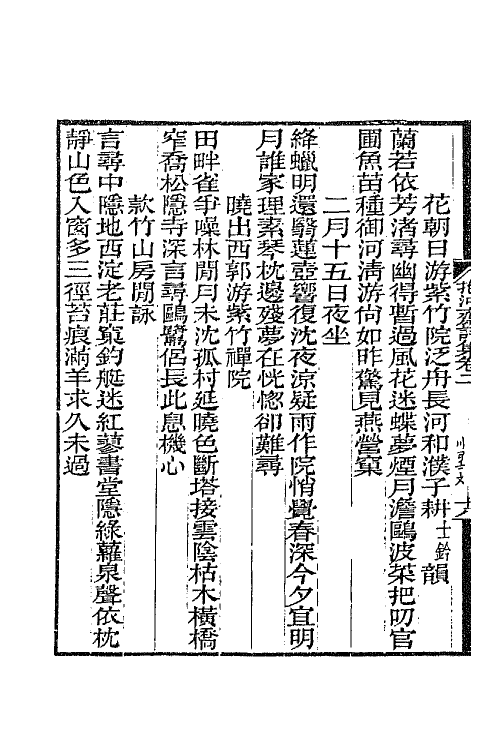 花朝日游紫竹院泛舟長河和濮子耕士鈐韻
蘭若依芳渚尋幽得暫過風花迷蝶夢煙月澹鷗波菜把叨官
圃魚苗種御河淸游尙如昨驚見燕營窠
二月十五日夜坐
絳蠟明還翳蓮壺響復沈夜涼疑雨作院悄覺春深今夕宜明
月誰家理素琴枕邊殘夢在恍惚卻難尋
曉出西郭游紫竹禪院
田畔雀爭噪林閒月未沈孤村延曉色斷塔接雲陰枯木橫橋
窄喬松隱寺深言尋鷗鷺侶長此息機心
款竹山房閒詠
言尋中隱地西淀老莊窠釣艇迷紅蓼書堂隱綠蘿泉聲依枕
靜山色入窗多三徑苔痕滿羊求久未過